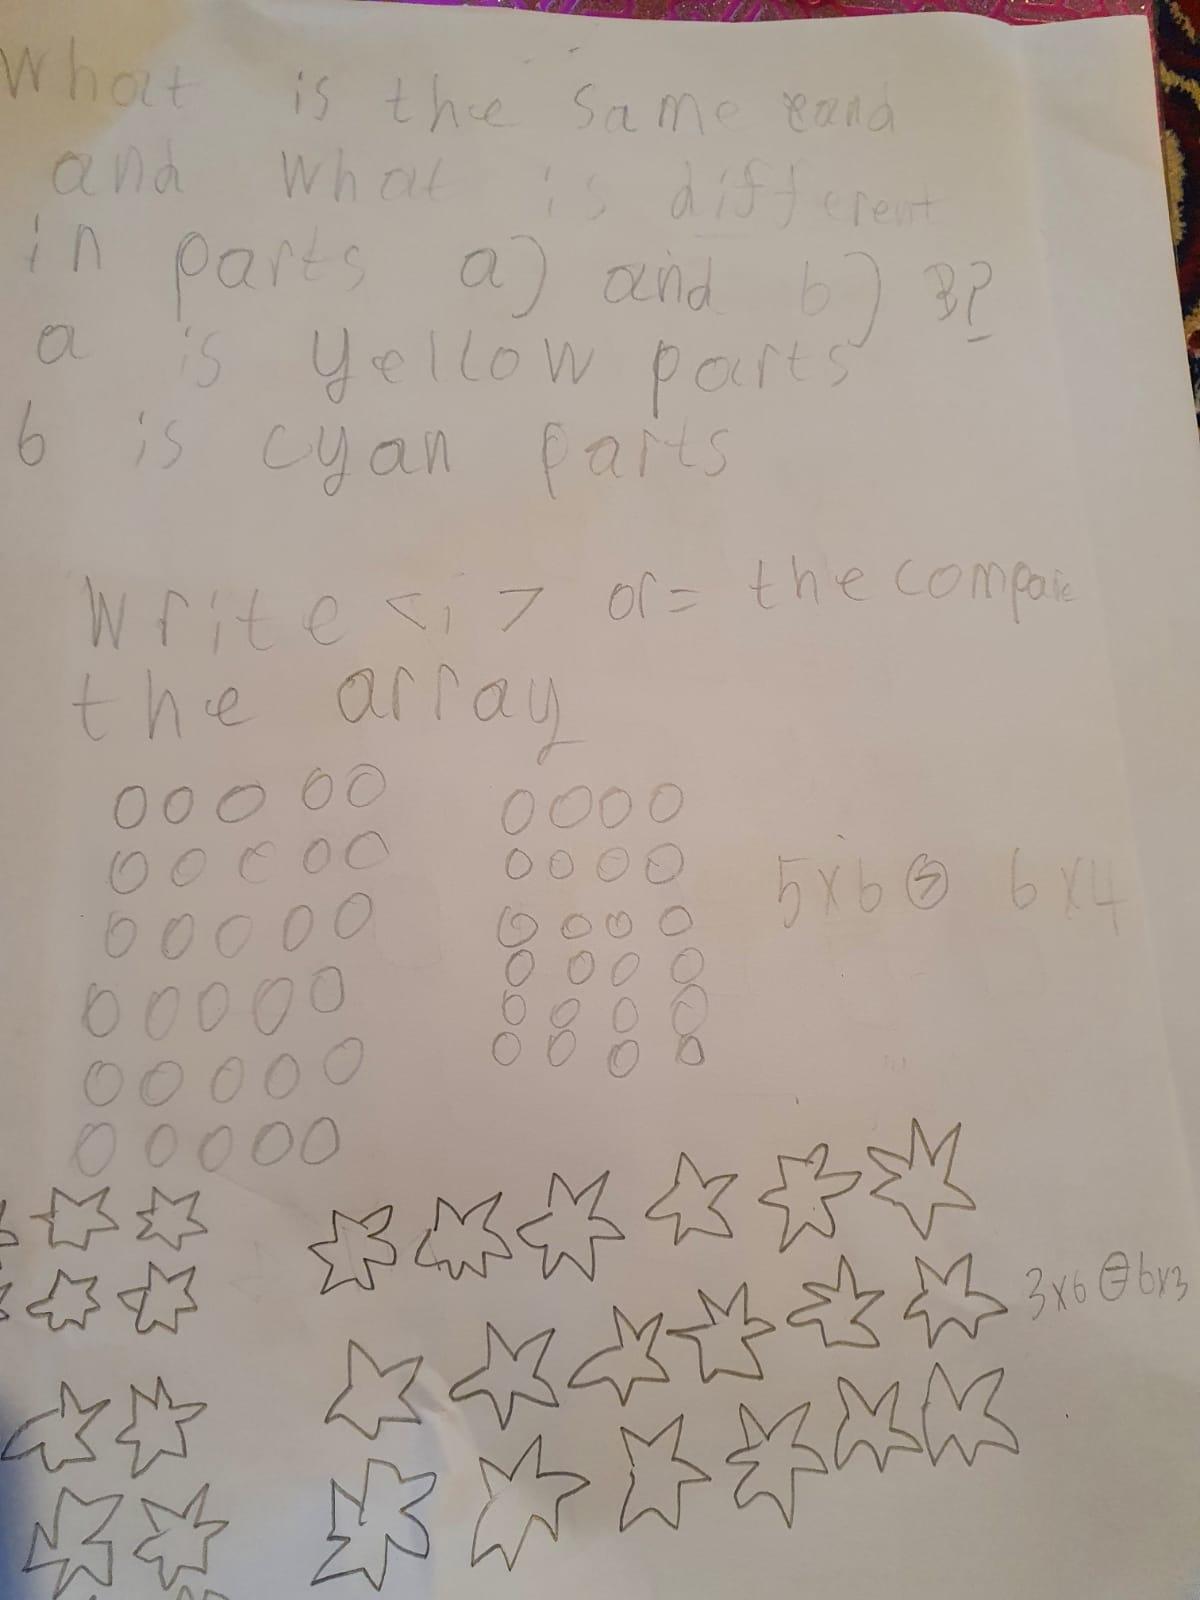 What is the same and
and what is different
in parts a) and b) ?
a is yellow parts
b is cyan parts
Write <, > or = the compare
the array
5x6 > 6x4
3x6 = 6x3